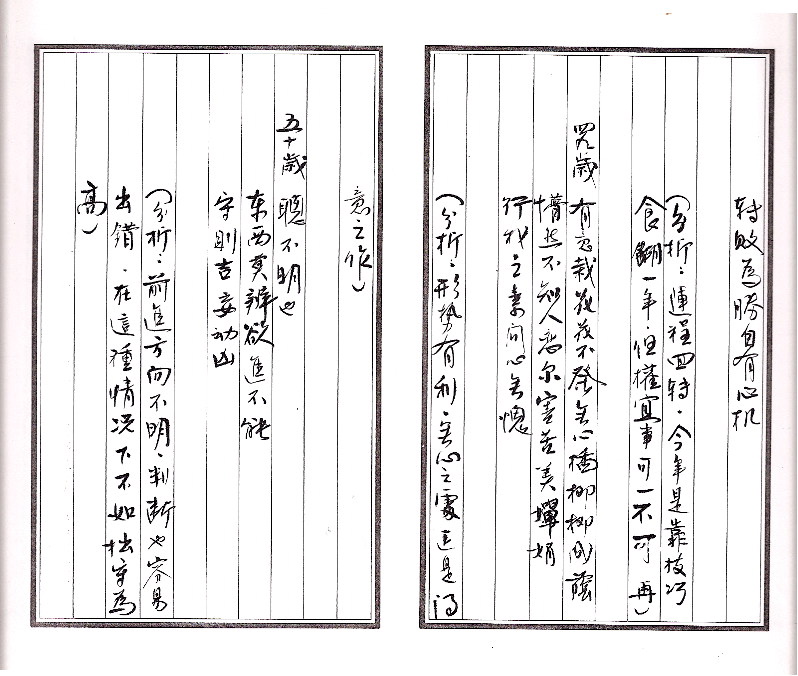 轉敗為勝自有心机
(分析：運程回轉．今年是靠技巧
食餬一年．但權宜事可一不可再)
四九歲 有意栽花花不發無心插柳柳成蔭
懵然不知人悉尔寒苦美嬋娟
行我之素问心無愧
(分析：形勢有利．無心之處正是得
意之作)
五十歲 聰不明也
东西莫辨欲進不能
守則吉妄动凶
(分析：前進方向不明．判断也容易
出错．在這種情况下不如拙守為
高)